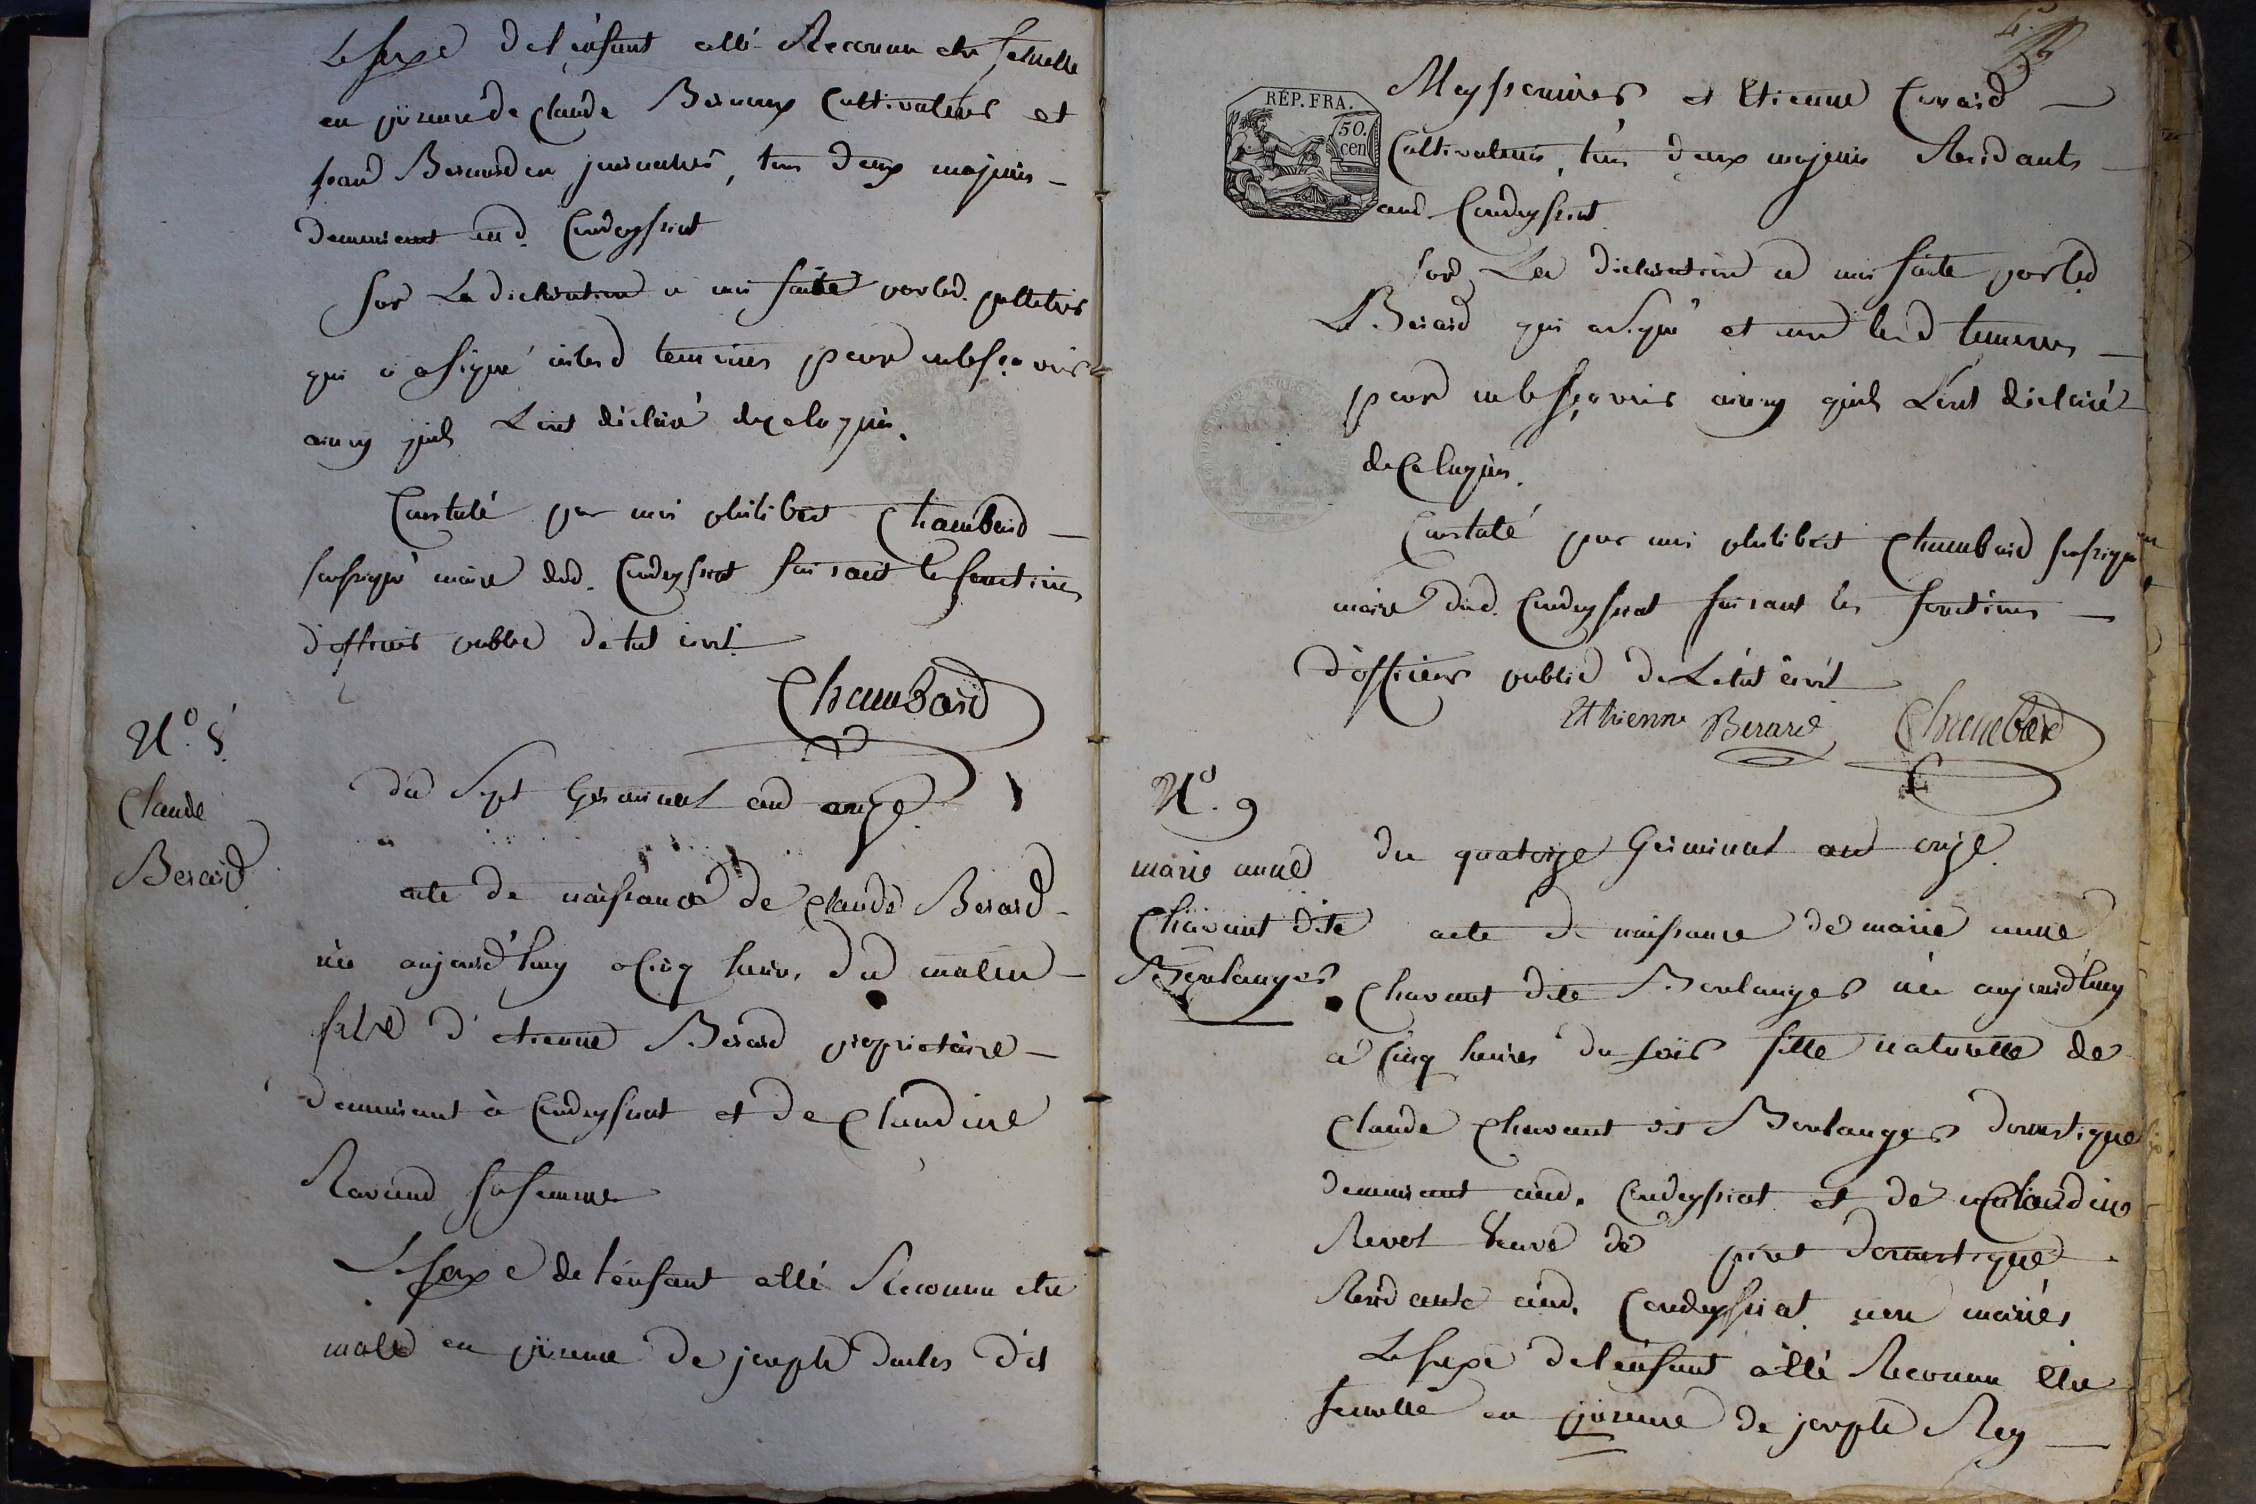 Le sexe de l'enfant a été Reconnu etre femelle
en présence de Claude Bernoux Cultivateur et
Bernardin journalier, tous deux majeurs
demeurant aud. Condeyssiat
Sur La déclaration a moi faite par led. pelletier
qui a signé led temoins pour ne le sçavoir
ainsy quils L'ont déclaré de ce Requis.
Constaté par moi philibert Chambard
soussigné maire dud. Condeyssiat faisant les fonctions
d'officier public d'état civil
Chambard
N.° 8
Claude
Berard
du Sept Germinal an onze
acte de naissance de Claude Berard
né aujourd'huy a Cinq heures du matin
fils d'etienne Berard propriétaire
demeurant à Condeyssiat et de Claudine
Ravand sa femme
Le sexe de l'énfant a été Reconnu etre
male en présence de joseph dit
RÉP. FRA.
50.
cen
et Etienne
Cultivateurs, tous deux majeurs Residants
aud. Condeyssiat
Sur La déclaration a moi faite par led
Berard qui a signé et non les d temoins
pour ne le sçavoir ainsy quils L'ont déclaré
de ce Requis.
Constaté par moi philibert Chambard soussigné
maire dud. Condeyssiat faisant les fonctions
d'officier public de L'état civil
Ethienne Berard Chambard
N.° 9
marie anne
Chavant dite
Boulanger
du quatorze Germinal an onze
acte de naissance de marie anne
Chavant dite Boulanger née aujourd'huy
à Cinq heures du soir fille naturelle de
Claude Chavant dit Boulanger domestique
demeurant aud. Condeyssiat et de Claudine
Revol Veuve de piret domestique
Residante aud. Condeyssiat non mariés
Le sexe de l'énfant a été Reconnu etre
femelle en présence de joseph Rey